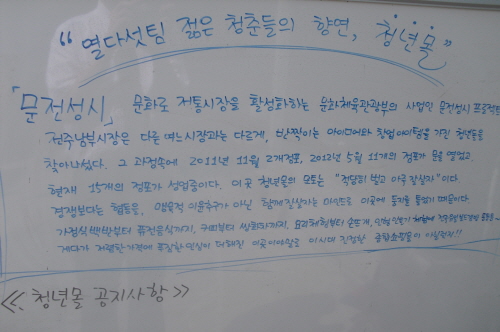 “열다섯팀 젊은 청춘들의 향연, 청년몰”
「문전성시」 문화로 전통시장을 활성화하는 문화체육관광부의 사업인 문전성시 프로젝트
전주남부시장은 다른 여느시장과는 다르게, 반짝이는 아이디어와 창업아이템을 가진 청년들을
찾아나섰다. 그 과정속에 2011년 11월 2개점포, 2012년 5월 11개의 점포가 문을 열었고,
현재 15개의 점포가 성업중이다. 이곳 청년몰의 모토는 “적당히 벌고 아주 잘살자”이다
경쟁보다는 협동을, 맹목적 이윤추구가 아닌 함께잘살자는 마인드로 이곳에 둥지를 틀었기 때문이다.
가정식백반부터 퓨전음식까지, 커피부터 쌍화차까지, 요리체험부터 손뜨개,
게다가 저렴한가격에 푸짐한인심이 더해진 이곳이야말로 이시대 진정한 종합쇼핑몰이 아닐런지!!
<<. 청년몰 공지사항 >>